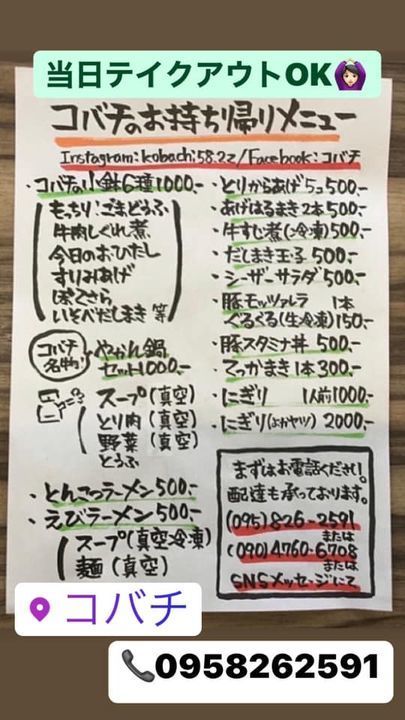 当日テイクアウトOK🙆🏻‍♀️
コバチのお持ち帰りメニュー
Instagram:kobachi.58.22/Facebook:コバチ
・コバチの小鉢6種1000.-
もっちり:ごまどうふ
牛肉しぐれ煮
今日のおひたし
すりみあげ
ぽてさら
いそべだしまき 等
コバチ名物!
やかん鍋
セット1000.-
スープ(真空)
とり肉(真空)
野菜(真空)
とうふ
・とんこつラーメン500.-
・えびラーメン500.-
スープ(真空冷凍)
麺(真空)
・とりからあげ5コ500.-
・あげはるまき2本500.-
・牛すじ煮(冷凍)500.-
・だしまき玉子500.-
・シーザーサラダ500.-
・豚モッツァレラ 1本
ぐるぐる(生冷凍)150.-
・豚スタミナ丼 500.-
・てっかまき1本300.-
・にぎり 1人前1000.-
・にぎり(よかヤツ) 2000.-
まずはお電話ください。
配達も承っております。
(095)826-2591
または
(090)4760-6708
または
SNSメッセージにて
コバチ
📞0958262591